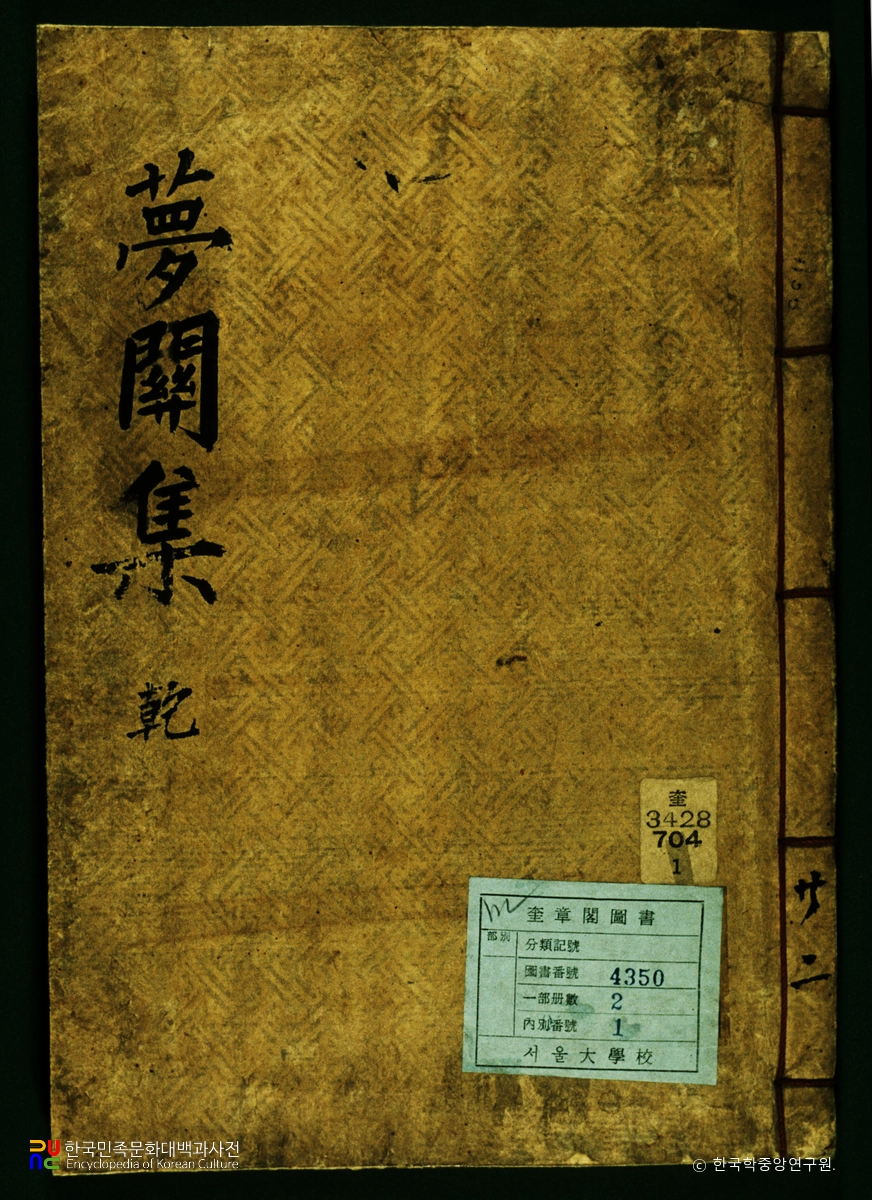 夢關集 乾
奎
3428
704
1
奎章閣圖書
部別
分類記號
圖書番號 4350
一部册數 2
內別番號 1
서울大學校
한국민족문화대백과사전
Encyclopedia of Korean Culture
© 한국학중앙연구원.